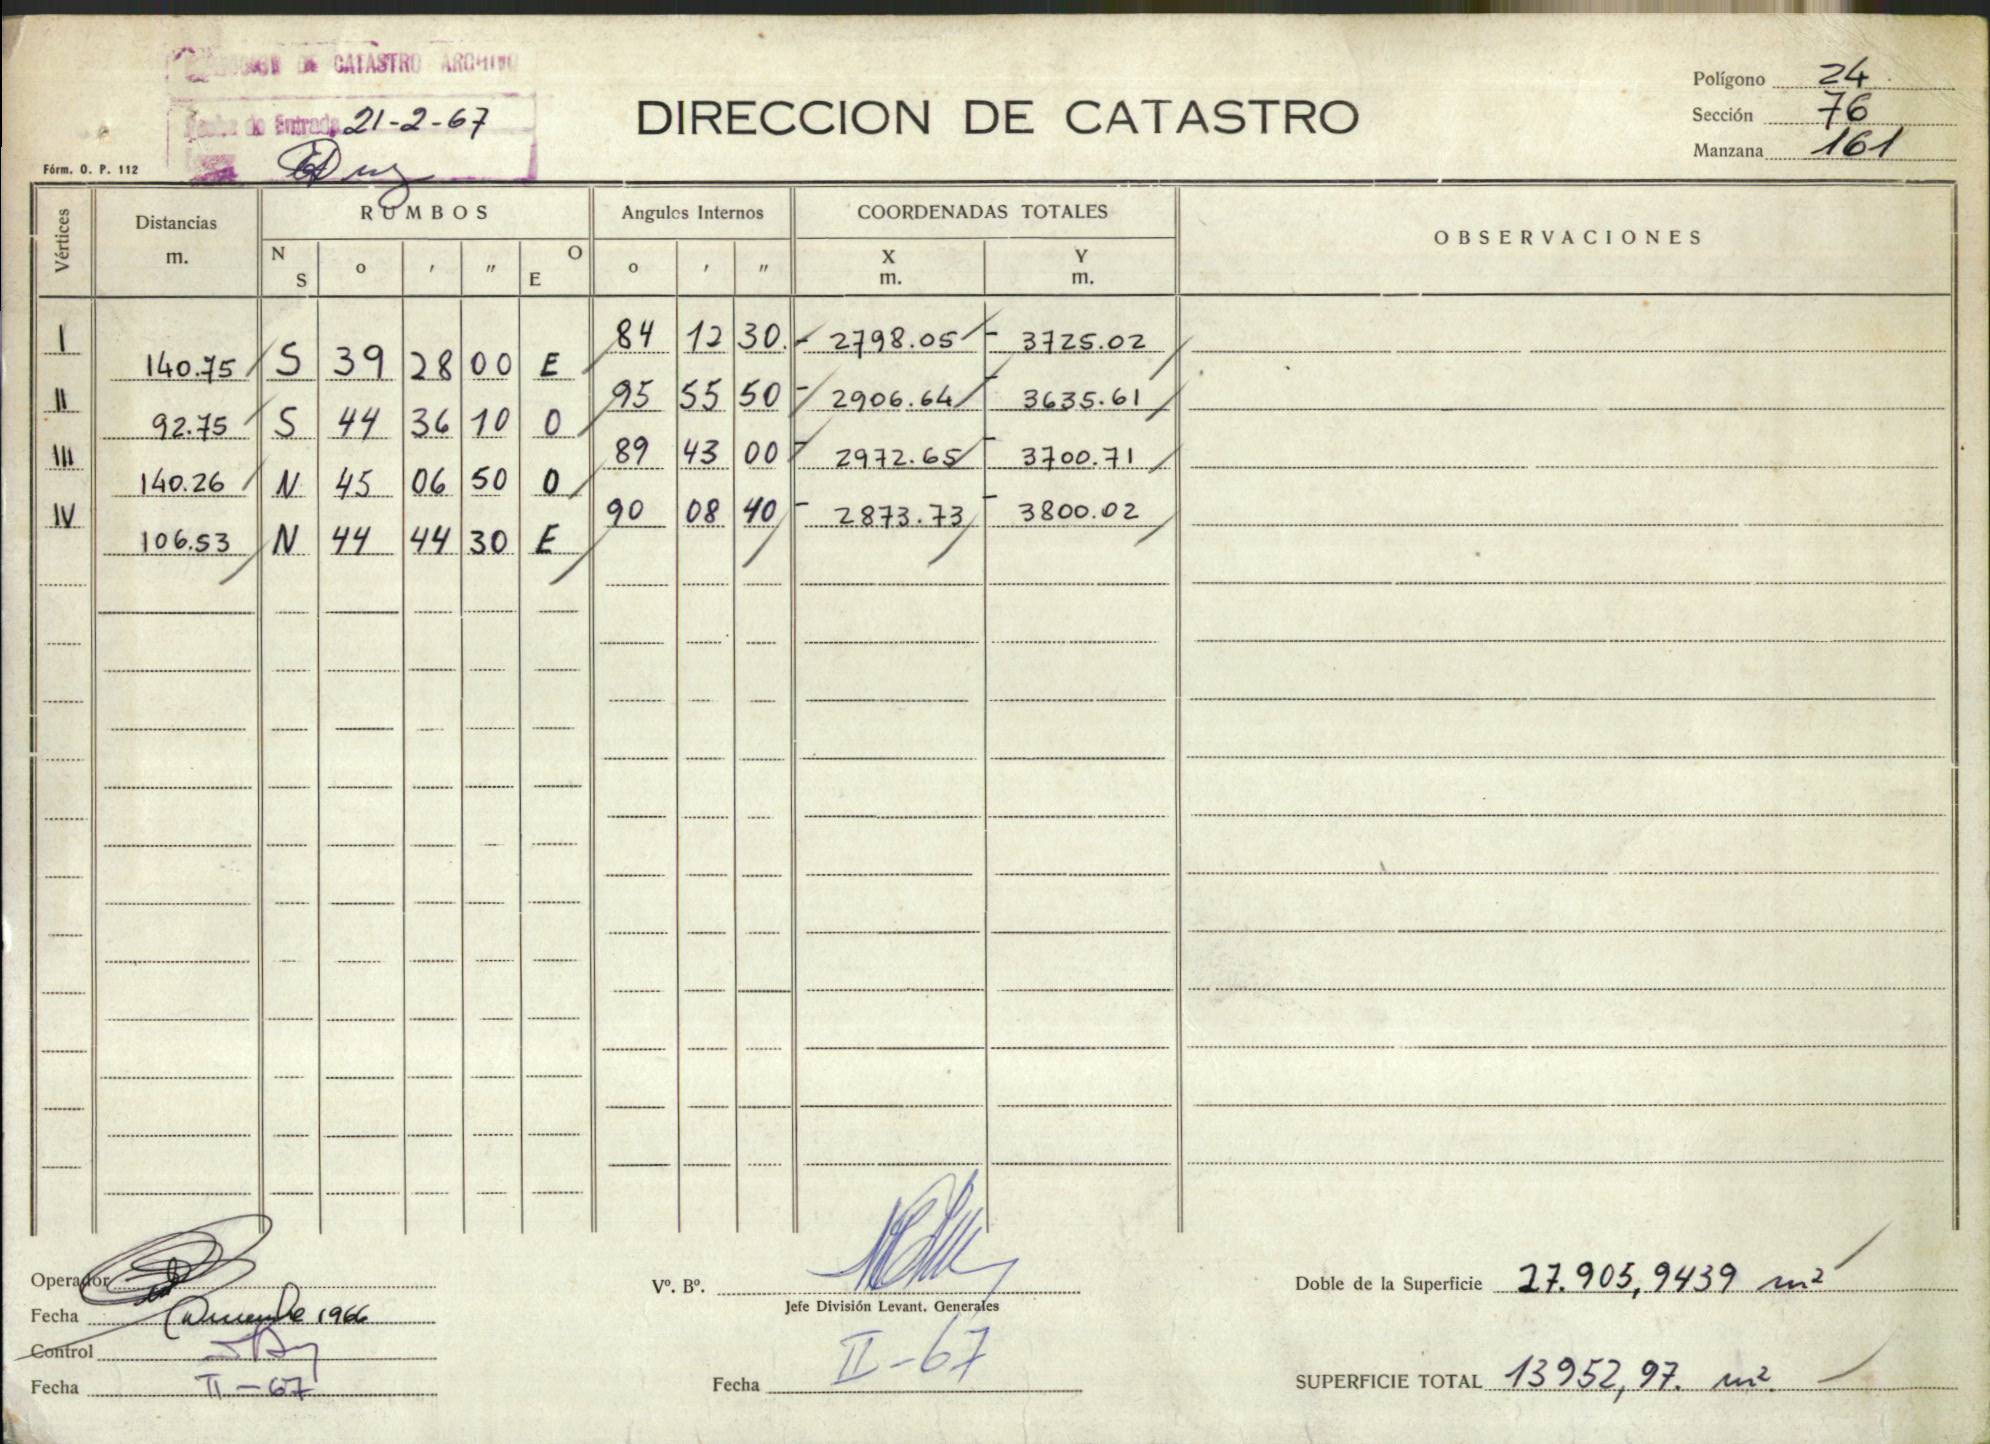 DE CATASTRO ARCHIVO
Fecha de Entrada 21-2-67
DIRECCION DE CATASTRO
Polígono 24
Sección 76
Manzana 161
Fórm. O. P. 112
Vértices
Distancias
m.
RUMBOS
N
S
o
,
"
O
E
Angulos Internos
o
,
"
COORDENADAS TOTALES
X
m.
Y
m.
OBSERVACIONES
I 84 12 30 - 2798.05 - 3725.02
140.75 S 39 28 00 E
II 95 55 50 - 2906.64 - 3635.61
92.75 S 44 36 10 O
III 89 43 00 - 2972.65 - 3700.71
140.26 N 45 06 50 O
IV 90 08 40 - 2873.73 - 3800.02
106.53 N 44 44 30 E
Operador
Fecha Diciembre 1966
Control
Fecha II-67
Vº. Bº.
Jefe División Levant. Generales
Fecha II-67
Doble de la Superficie 27.905,9439 m²
SUPERFICIE TOTAL 13952,97. m².